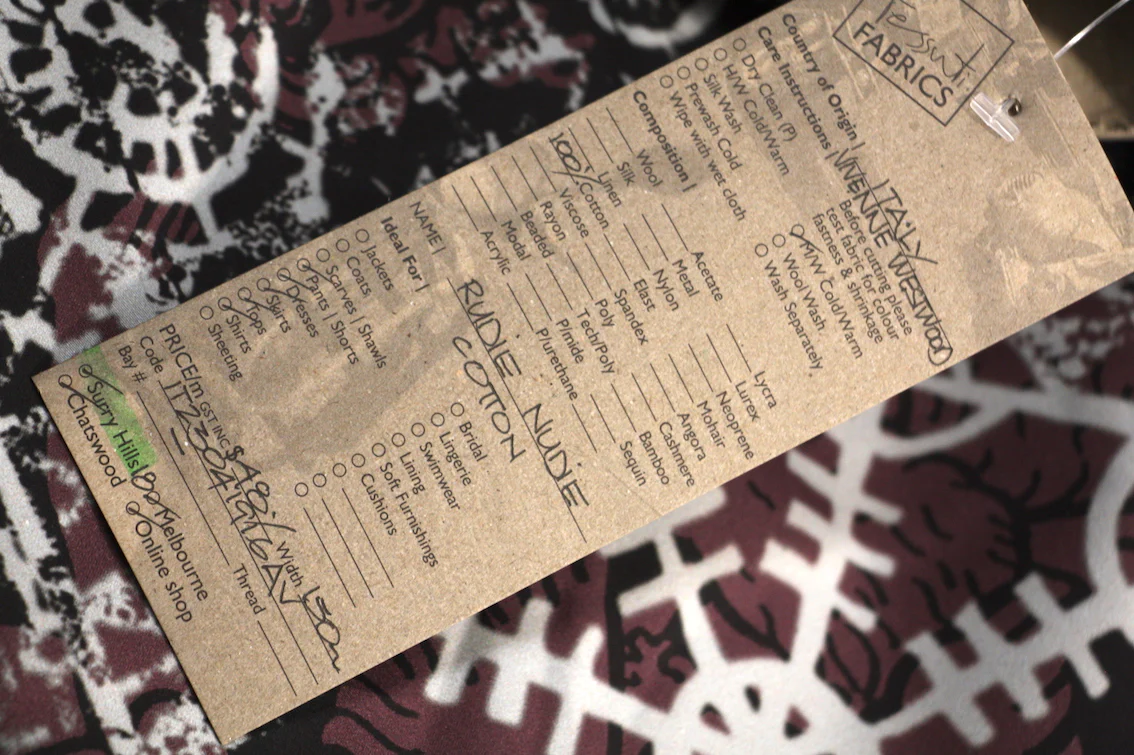 Tessuti
FABRICS
Country of Origin | ITALY
(VIVIENNE WESTWOOD)
Care Instructions | Before cutting please
test fabric for colour
fastness & shrinkage
Dry Clean (P)
H/W Cold/Warm
Silk Wash
Prewash Cold
Wipe with wet cloth
M/W Cold/Warm
Wool Wash
Wash Separately
Composition |
Wool
Silk
Linen
100% Cotton
Viscose
Rayon
Beaded
Modal
Acrylic
Acetate
Metal
Nylon
Elast
Spandex
Poly
Tech/Poly
P/mide
P/urethane
Lycra
Lurex
Neoprene
Mohair
Angora
Cashmere
Bamboo
Sequin
NAME | RUDIE NUDIE
COTTON
Ideal For |
Jackets
Coats
Scarves | Shawls
Pants | Shorts
Dresses
Skirts
Tops
Shirts
Sheeting
Bridal
Lingerie
Swimwear
Lining
Soft Furnishings
Cushions
PRICE/m GST INC $48.-/ Width 150
Code
Bay # Thread
Surry Hills Bo Melbourne
Chatswood Online shop